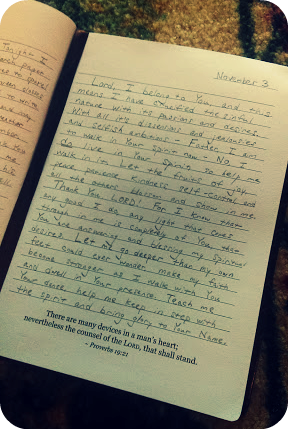 November 3
Lord, I belong to You and this
means I have crucified the sinful
nature with its passions and desires.
With all it's dissensions and jealousies
and selfish ambitions - Father, I am
to walk in Your Spirit now - No, I
do live in Your Spirit so help me
walk in it. Let the fruits of joy,
peace, patience, kindness, self-control and
all the others blossom and show in me.
Thank You LORD! For I know that
any good I do, any light that comes
through in me is completely of You, that
You are answering and blessing my spirits
desire! Let me go deeper than my own
feet could ever wander, make my faith
become stronger as I walk with You
and dwell in Your presence. Teach me
Your peace, help me keep in step with
the spirit and bring glory to Your Name.
There are many devices in a man's heart;
nevertheless the counsel of the LORD, that shall stand.
~ Proverbs 19:21